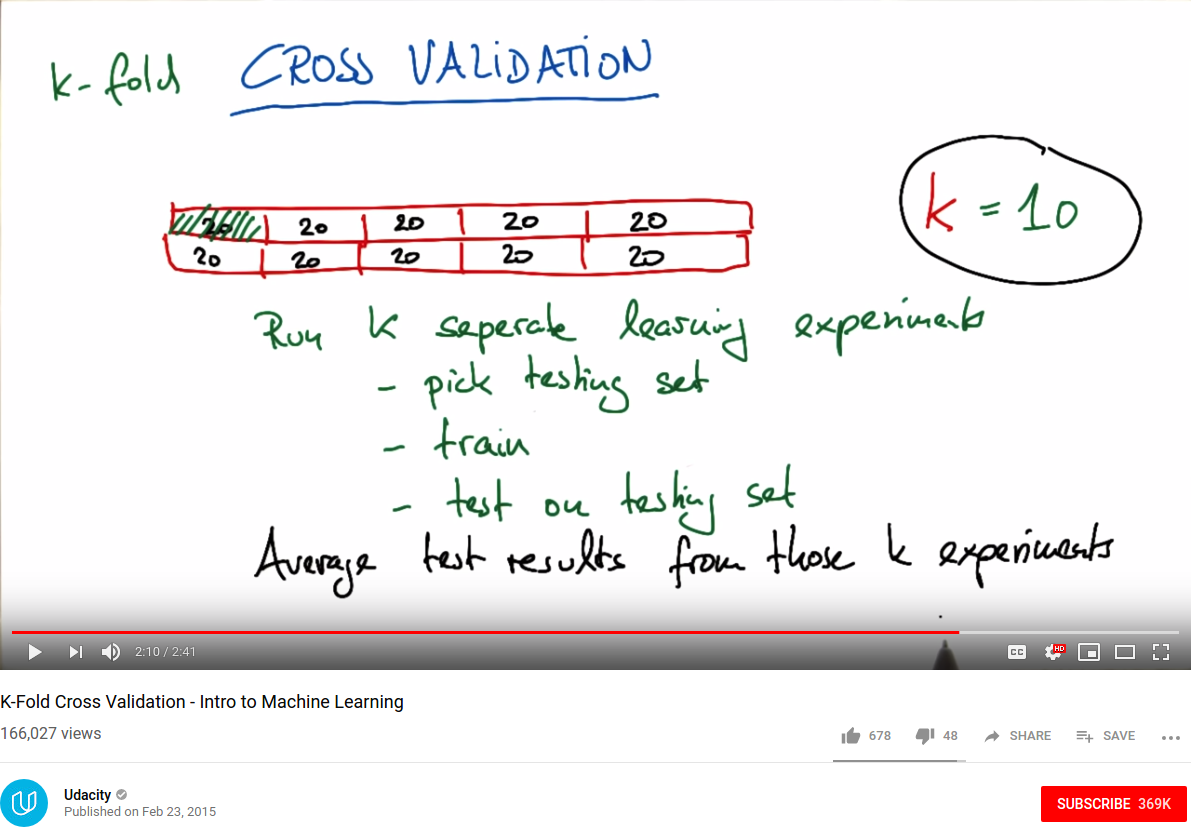 k-fold CROSS VALIDATION
k = 10
20 20 20 20 20
20 20 20 20 20
Run k seperate learning experiments
- pick testing set
- train
- test on testing set
Average test results from those k experiments
2:10 / 2:41 CC HD
K-Fold Cross Validation - Intro to Machine Learning
166,027 views
678 48 SHARE SAVE
Udacity
Published on Feb 23, 2015
SUBSCRIBE 369K